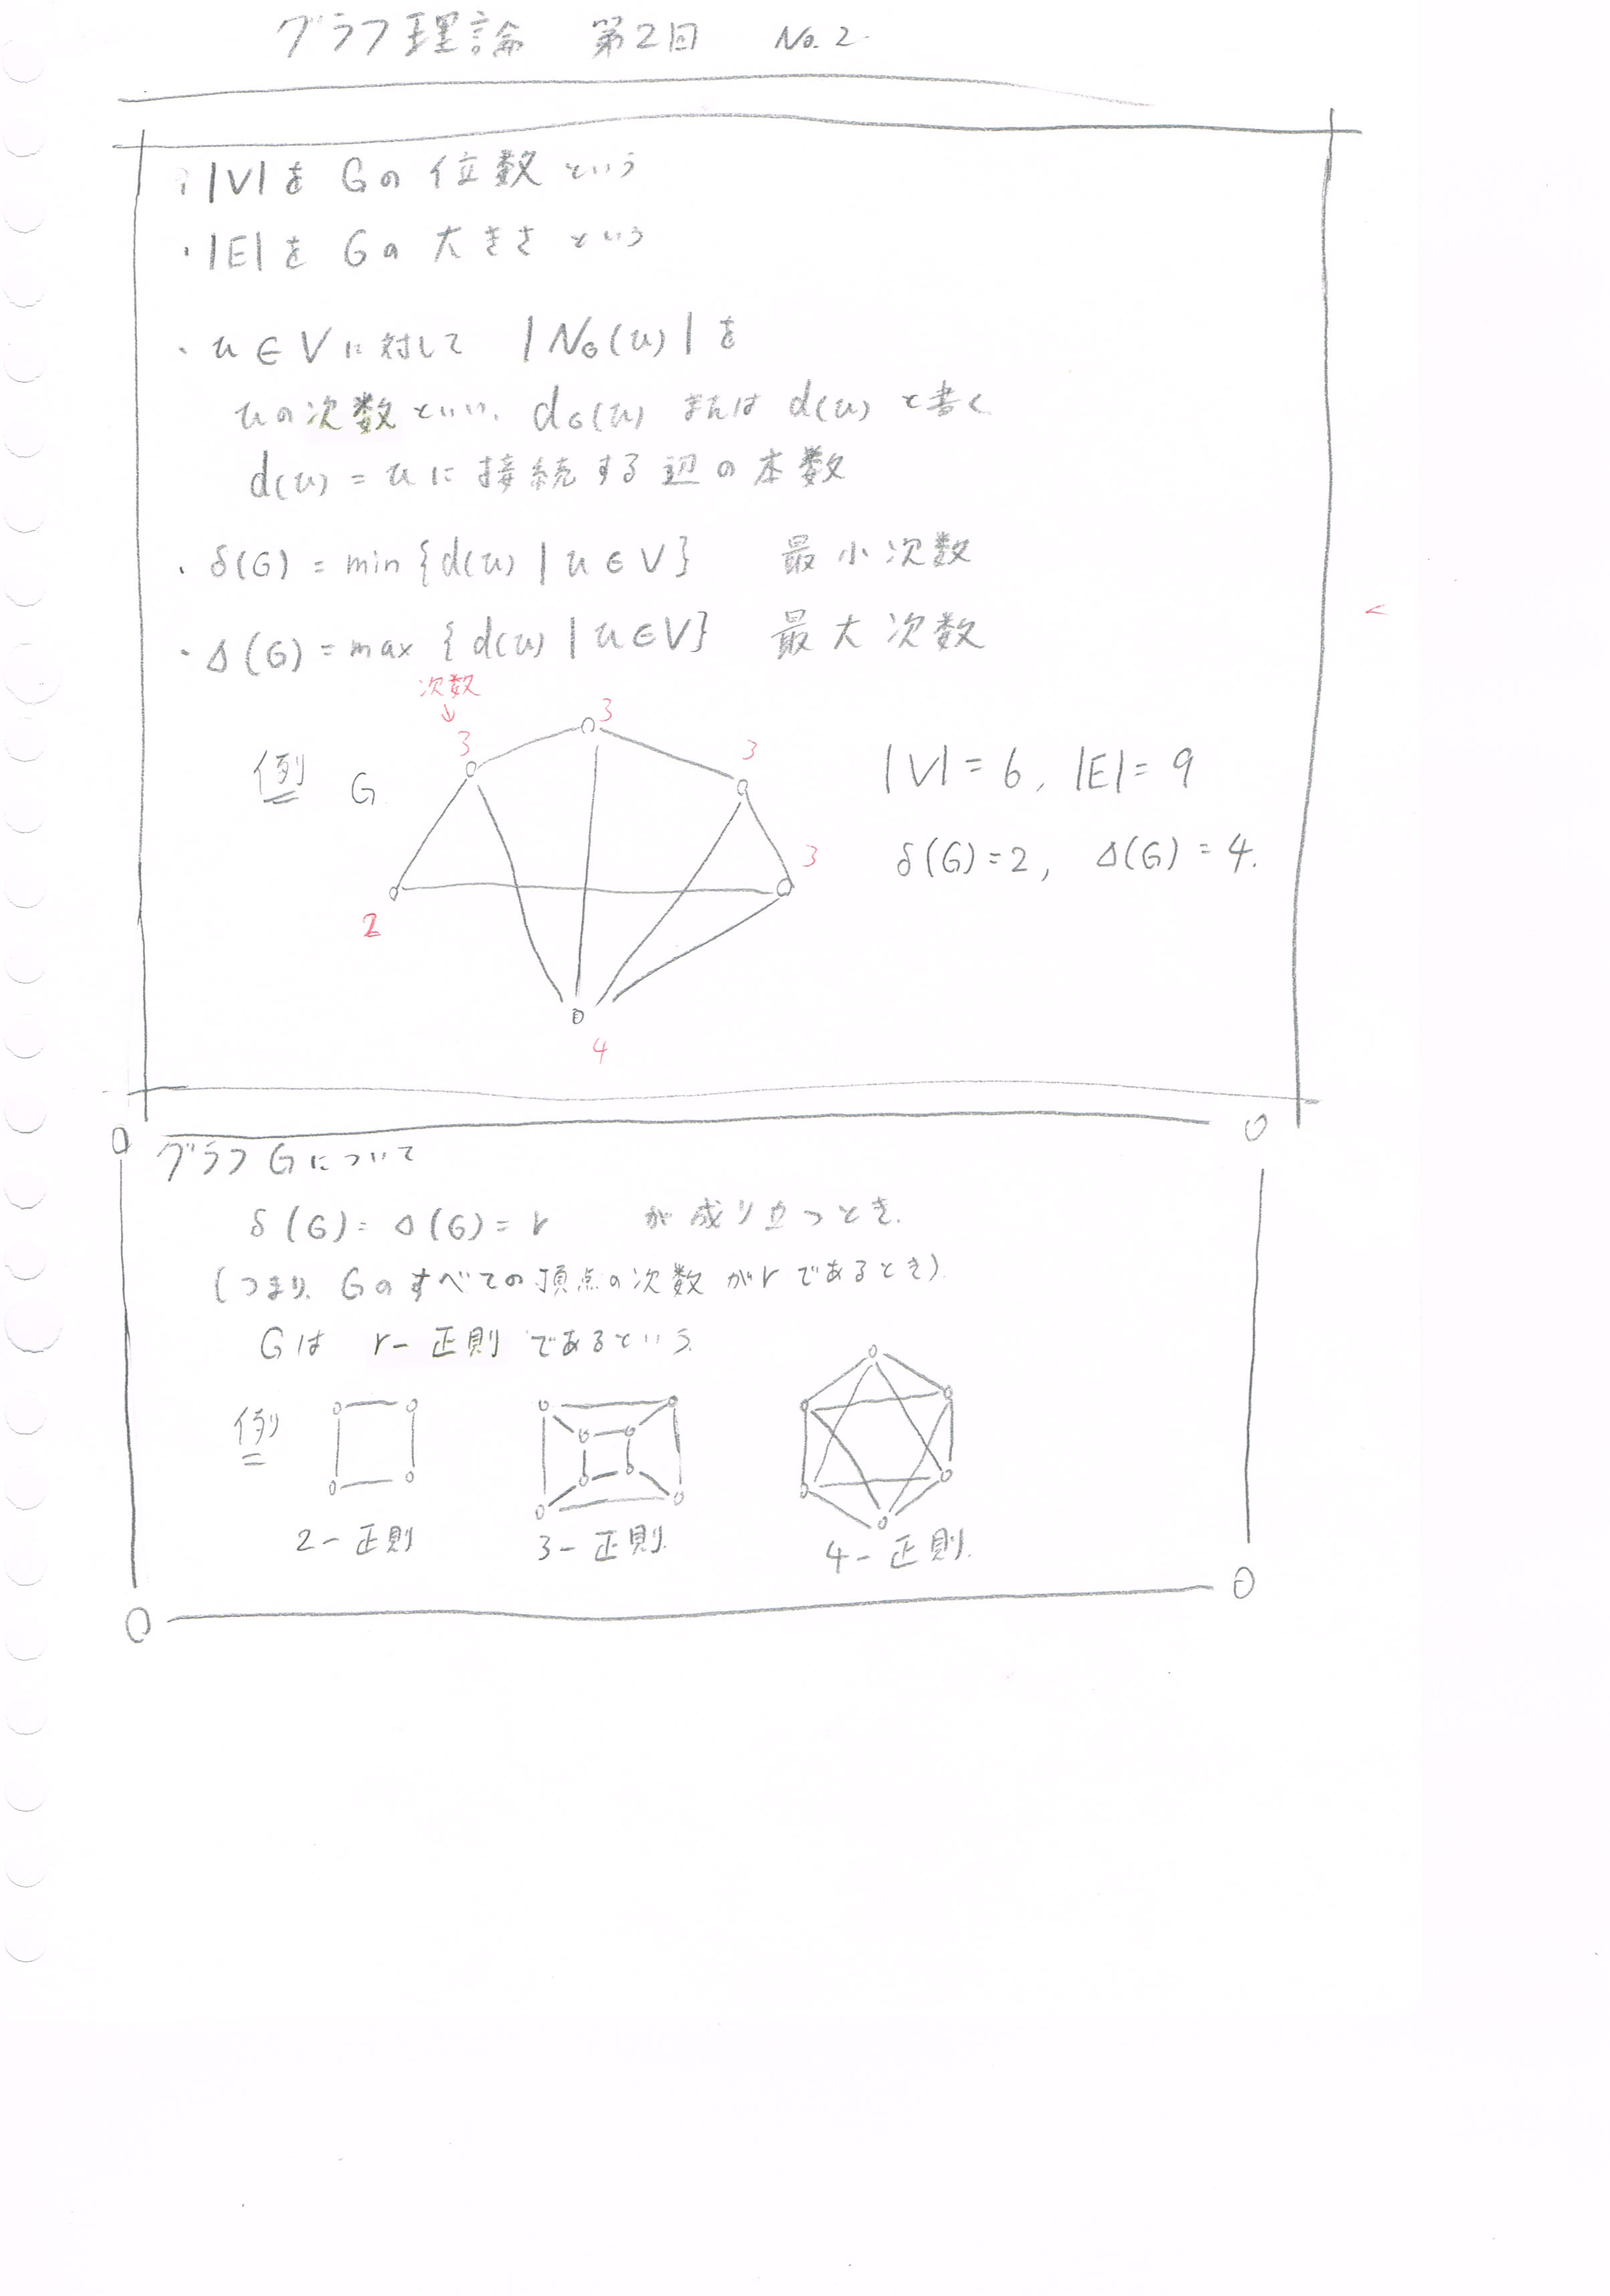 グラフ理論 第2回 No.2.
・|V|を Gの 位数 という
・|E|を Gの 大きさ という
・u∈Vに対して |N_G(u)|を
uの次数といい、d_G(u) または d(u) と書く
d(u) = uに接続する辺の本数
・δ(G) = min {d(u) | u∈V} 最小次数
・Δ(G) = max {d(u) | u∈V} 最大次数
次数
↓
3
3
3
例 G
|V| = 6, |E| = 9
3
δ(G) = 2, Δ(G) = 4.
2
4
グラフGについて
δ(G) = Δ(G) = r が成り立つとき.
(つまり、Gのすべての頂点の次数がrであるとき)
Gは r-正則 であるという.
例
2-正則
3-正則.
4-正則.